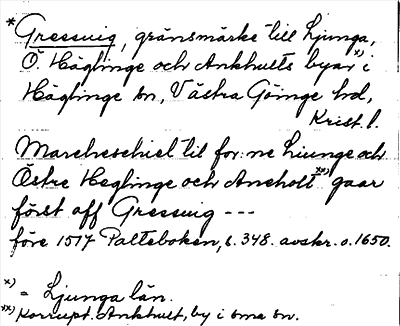 * Gressuig, gränsmärke till Ljunga,
Ö. Häglinge och Ankhults byar x) i
Häglinge sn, Västra Göinge hd,
Krist. l.
Marcheschiel til for:ne Liunge och
Östre Heglinge och Aneholt xx) gaar
först aff Gressuig ---
före 1517 Palteboken, s. 348. avskr. o. 1650.
x) = Ljunga län.
xx) Korrupt. Ankhult, by i sma sn.